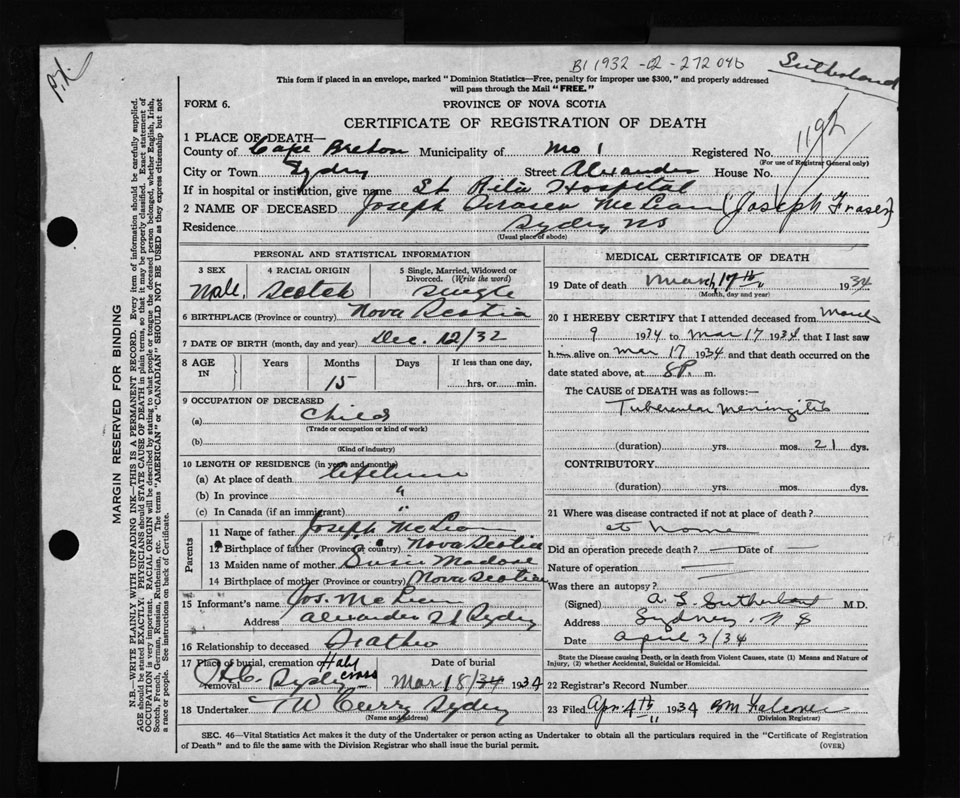 P.X.
B1 1932 -12 - 272 046
Sutherland
This form if placed in an envelope, marked "Dominion Statistics—Free, penalty for improper use $300," and properly addressed
will pass through the Mail "FREE."
FORM 6.
PROVINCE OF NOVA SCOTIA
CERTIFICATE OF REGISTRATION OF DEATH
1192
1 PLACE OF DEATH—
County of Cape Breton Municipality of No 1 Registered No.
(For use of Registrar General only)
City or Town Sydney Street Alexander House No.
If in hospital or institution, give name St Rita Hospital
2 NAME OF DECEASED Joseph Fraser McLean (Joseph Fraser)
Residence Sydney NS
(Usual place of abode)
PERSONAL AND STATISTICAL INFORMATION
3 SEX 4 RACIAL ORIGIN 5 Single, Married, Widowed or
Divorced. (Write the word)
Male, Scotch Single
6 BIRTHPLACE (Province or country) Nova Scotia
7 DATE OF BIRTH (month, day and year) Dec. 12/32
8 AGE IN Years Months Days If less than one day,
15 hrs. or min.
9 OCCUPATION OF DECEASED
(a) Child
(Trade or occupation or kind of work)
(b)
(Kind of industry)
10 LENGTH OF RESIDENCE (in years and months)
(a) At place of death lifetime
(b) In province "
(c) In Canada (if an immigrant) "
Parents
11 Name of father Joseph McLean
12 Birthplace of father (Province or country) Nova Scotia
13 Maiden name of mother Susie
14 Birthplace of mother (Province or country) Nova Scotia
15 Informant's name Jos. McLean
Address Alexander St Sydney
16 Relationship to deceased
17 Place of burial, cremation or removal Date of burial
Holy Cross
R.C. Sydney Mar 18/34 1934
18 Undertaker W Curry Sydney
(Name and address)
MEDICAL CERTIFICATE OF DEATH
19 Date of death March 17th 1934
(Month, day and year)
20 I HEREBY CERTIFY that I attended deceased from March
9 1934 to Mar 17 1934, that I last saw
him alive on Mar 17 1934 and that death occurred on the
date stated above, at 8 P. m.
The CAUSE of DEATH was as follows:—
Tubercular Meningitis
(duration) yrs. mos. 21 dys.
CONTRIBUTORY
(duration) yrs. mos. dys.
21 Where was disease contracted if not at place of death?
at home
Did an operation precede death? — Date of —
Nature of operation —
Was there an autopsy? —
(Signed) A. L. Sutherland M.D.
Address Sydney, N S
Date April 3/34
State the Disease causing Death, or in death from Violent Causes, state (1) Means and Nature of
Injury, (2) whether Accidental, Suicidal or Homicidal.
22 Registrar's Record Number
23 Filed Apr. 4th 1934
(Division Registrar)
SEC. 46—Vital Statistics Act makes it the duty of the Undertaker or person acting as Undertaker to obtain all the particulars required in the "Certificate of Registration
of Death" and to file the same with the Division Registrar who shall issue the burial permit. (OVER)
MARGIN RESERVED FOR BINDING
N.B.—WRITE PLAINLY WITH UNFADING INK—THIS IS A PERMANENT RECORD. Every item of information should be carefully supplied.
AGE should be stated EXACTLY. PHYSICIANS should STATE CAUSE OF DEATH in plain terms, so that it may be properly classified. Exact statement of
OCCUPATION is very important. RACIAL ORIGIN will be described by stating to what people or tongue the deceased person belonged, whether English, Irish,
Scotch, French, German, Russian, Ruthenian, etc. The terms "AMERICAN" or "CANADIAN" SHOULD NOT BE USED as they express citizenship but not
a race or people. See instructions on back of Certificate.